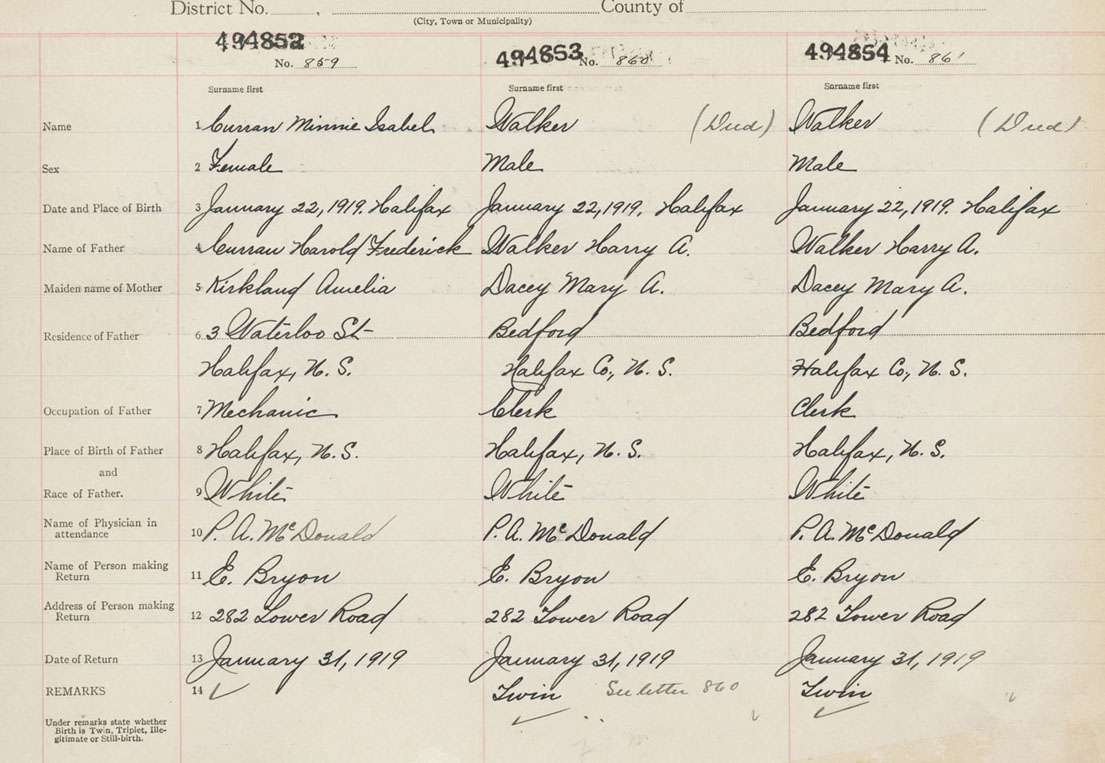 District No. , County of
(City, Town or Municipality)
494852 494853 494854
No. 859 No. 860 No. 861
Surname first Surname first Surname first
Name 1 Curran Minnie Isabel Walker (Died) Walker (Died)
Sex 2 Female Male Male
Date and Place of Birth 3 January 22, 1919. Halifax January 22, 1919. Halifax January 22, 1919. Halifax
Name of Father 4 Curran Harold Frederick Walker Harry A. Walker Harry A.
Maiden name of Mother 5 Kirkland Amelia Dacey Mary A. Dacey Mary A.
Residence of Father 6 3 Waterloo St Bedford Bedford
Halifax, N. S. Halifax Co., N. S. Halifax Co., N. S.
Occupation of Father 7 Mechanic Clerk Clerk
Place of Birth of Father 8 Halifax, N. S. Halifax, N. S. Halifax, N. S.
and
Race of Father. 9 White White White
Name of Physician in
attendance 10 P. A. McDonald P. A. McDonald P. A. McDonald
Name of Person making
Return 11 E. Bryon E. Bryon E. Bryon
Address of Person making
Return 12 282 Tower Road 282 Tower Road 282 Tower Road
Date of Return 13 January 31, 1919 January 31, 1919 January 31, 1919
REMARKS 14 ✓ Twin See letter 860 Twin
Under remarks state whether
Birth is Twin, Triplet, Ille-
gitimate or Still-birth.